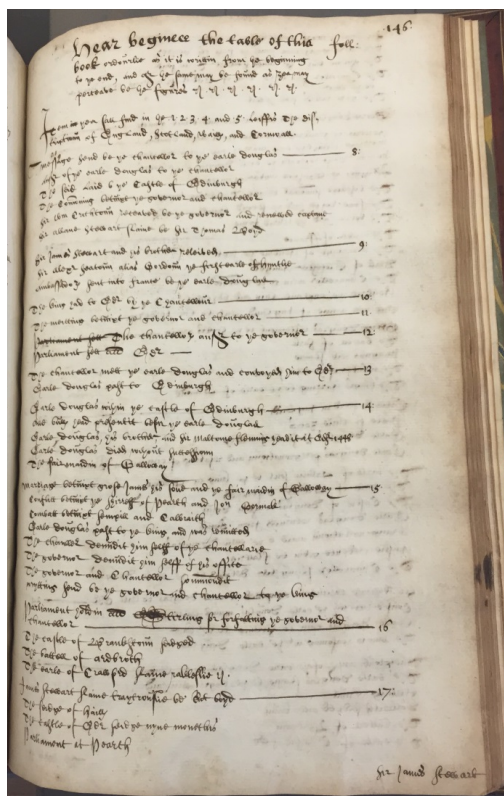 146
Hear beginneth the table of this foll:
book ordourlie as it is writtin from ye beginning
to ye end, and as ye same may be found as yea may
perceave be ye figures
Item yea sall find in ye 1 2 3 4 and 5 leiffis The dis
of England, Scotland, Wales, and Cornwall
message send be ye chancellor to ye earle douglas 8:
of ye earle douglas to ye chancellor
The said ye Castle of Edinburgh
The betwixt ye governor and chancellor
Sir receaved be ye governor and
Sir allane Stewart slaine be Sir Thomas Boyd
Sir James Stewart and his brether releived 9
Sir alexr seatoun alias Gordoun ye first earle of Huntlie
ambassadors sent into france be ye earle douglas
The king had to be ye Chancellour 10
The meitting betwixt ye governor and chancellor 11
The chancellor to ye governor 12
Parliament
The chancellor mett ye earle douglas and convoyed him to 13
Earle douglas past to Edinburgh
Earle douglas within ye castle of Edinburgh 14
ane bulls head presentit befor ye earle douglas
Earle douglas, his brother and Sir Malcome fleming headit at 1440
Earle Douglas died without successioun
The fair maidin of Galloway
Marriage betwixt grose James his sone and ye fair maidin of Galloway 15
Conflict betwixt ye Shirreff of Pearth and John Gormak
Combatt betwixt Sempill and Calbraith
Earle douglas past to ye king and was remitted
The chancellor demitit him self of ye chancellarie
The governor demitit him self of his office
The governor and Chancellor sommondit
send be ye governor and chancellor to ye king
Parliament holdin Sterling for forfalting ye governor and
chancellor 16
The castle of seidged
The battell of arbroth
The earle of Crawfurd slaine
James Stewart slaine be boyd 17
The seidge of
The castle of seidged nyne monethis
Parliament at Pearth
Sir James Stewart